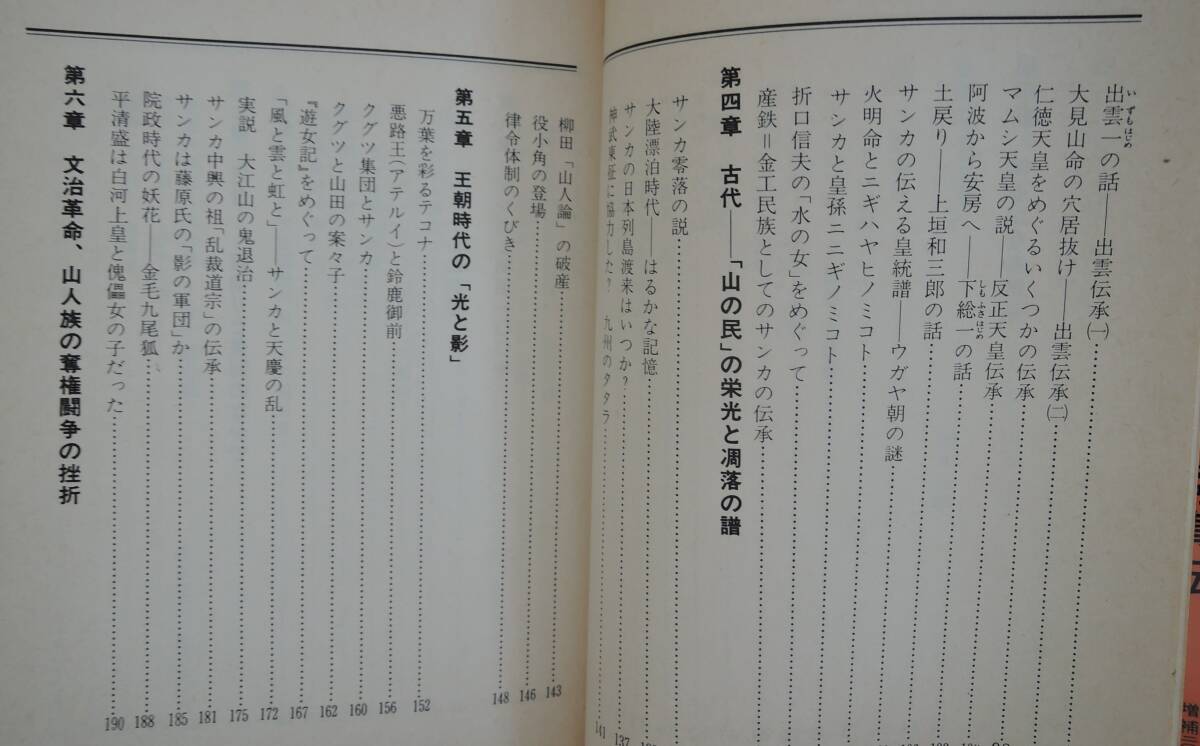 出雲一の話――出雲伝承㈠
いずもはじめ
大見山命の穴居抜け――出雲伝承㈡
仁徳天皇をめぐるいくつかの伝承
マムシ天皇の説――反正天皇伝承
阿波から安房へ――下総一の話
しもふさはじめ
土戻り――上垣和三郎の話
サンカの伝える皇統譜――ウガヤ朝の謎
火明命とニギハヤヒノミコト
サシカと皇孫ニニギノミコト
折口信夫の「水の女」をめぐって
産鉄＝金工民族としてのサンカの伝承
第四章　古代――「山の民」の栄光と凋落の譜
サンカ零落の説
大陸漂泊時代――はるかな記憶
サンカの日本列島渡来はいつか？ 137
神武東征に協力した？　九州のタタラ 141
柳田「山人論」の破産 143
役小角の登場 146
律令体制のくびき 148
第五章　王朝時代の「光と影」
万葉を彩るテコナ 152
悪路王（アテルイ）と鈴鹿御前 156
クグツ集団とサンカ 160
クグツと山田の案々子 162
『遊女記』をめぐって 167
「風と雲と虹と」――サンカと天慶の乱 172
実説　大江山の鬼退治 175
サンカ中興の祖「乱裁道宗」の伝承 181
サンカは藤原氏の「影の軍団」か 185
院政時代の妖花――金毛九尾狐 188
平清盛は白河上皇と傀儡女の子だった 190
第六章　文治革命、山人族の奪権闘争の挫折
増補